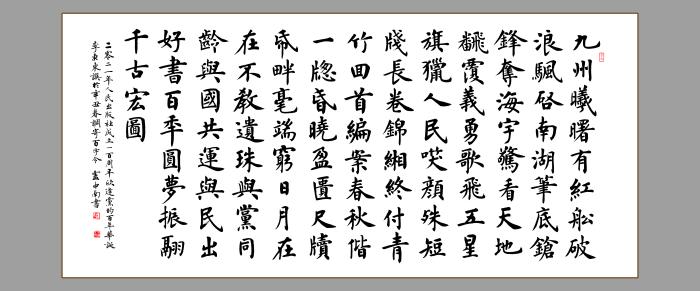 九州曦曙有紅船破
浪颿啓南湖筆底鎗
鋒奪海宇驚看天地
飜覆義勇歌飛五星
旗獵人民咲顔殊短
牋長卷錦緗終付青
竹回首編案春秋偕
一牕昏曉盈匱尺牘
帋畔毫端窮日月在
在不教遺珠與黨同
齡與國共運與民出
好書百年圓夢振翮
千古宏圖
二零二一年人民出版社成立一百周年欣逢黨的百年華誕
李東撰於辛丑春調寄百字令 盧中南書